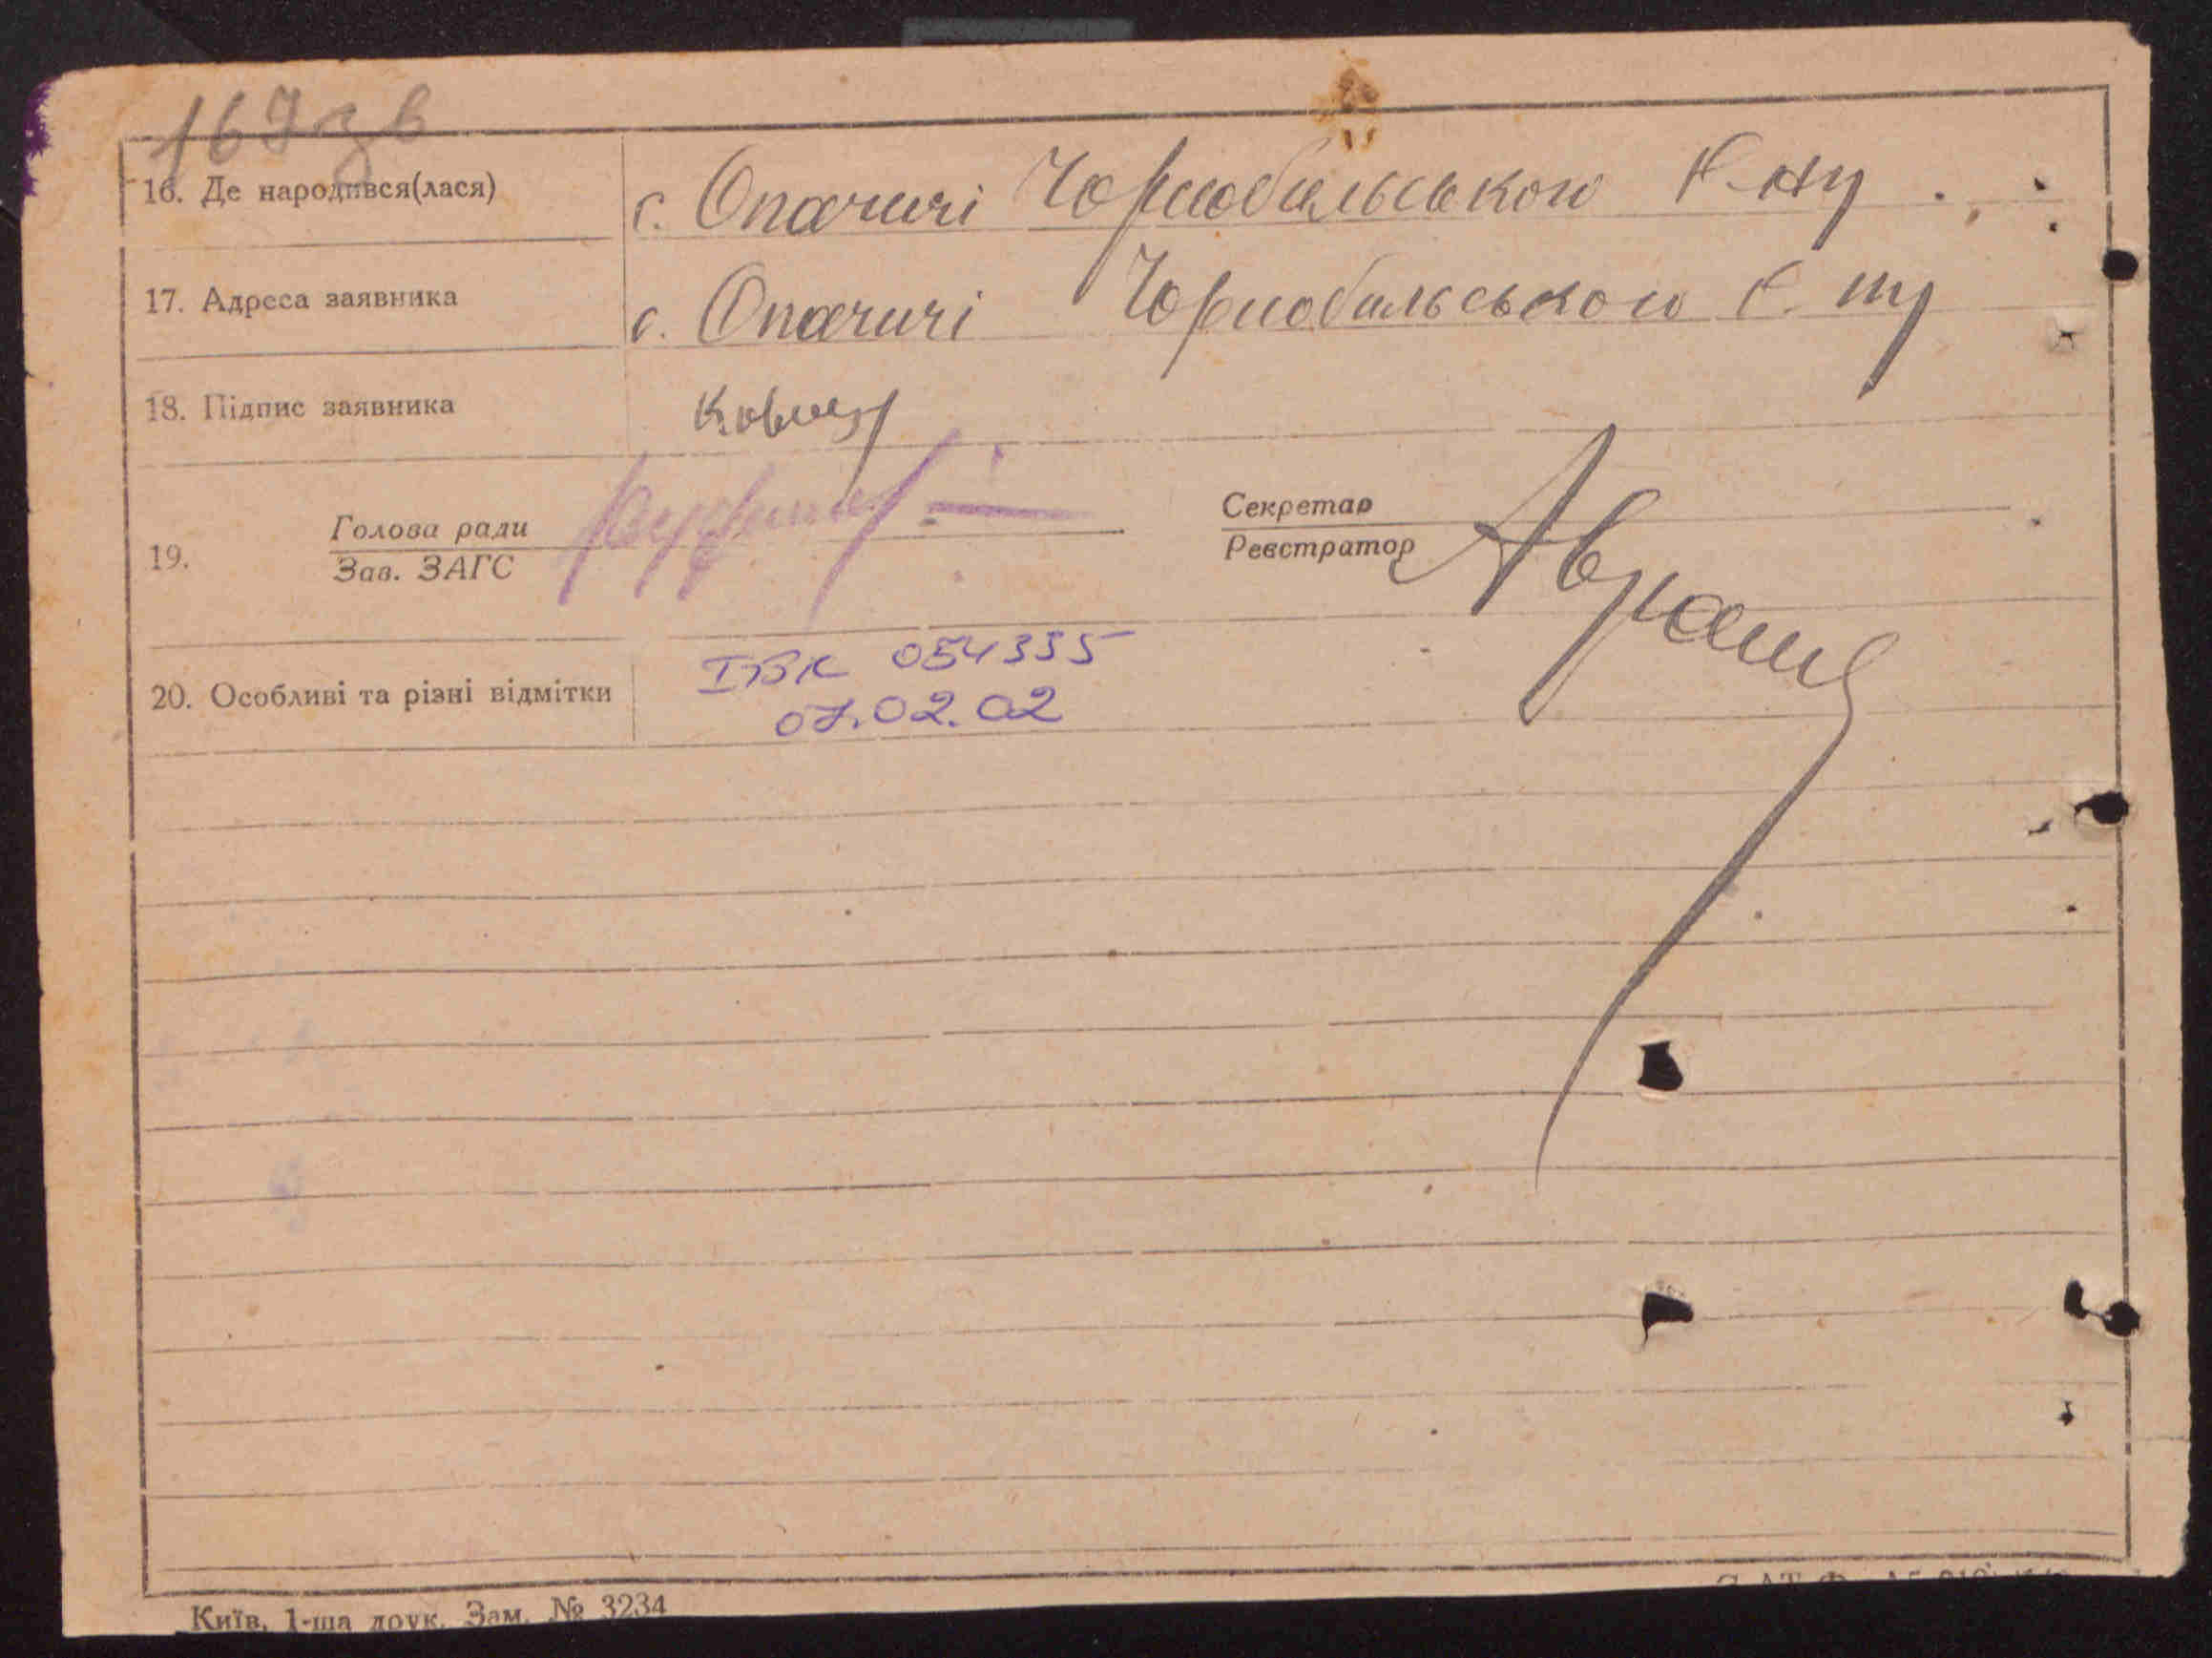 169 зв
16. Де народився(лася) с. Опачичі Чорнобильського р-ну
17. Адреса заявника с. Опачичі Чорнобильського р-ну
18. Підпис заявника
19. Голова ради
Зав. ЗАГС
Секретар
Реєстратор
20. Особливі та різні відмітки ІБК 054335
07.02.02
Київ, 1-ша друк. Зам. № 3234